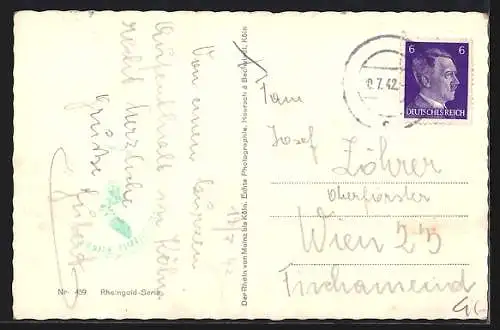 Von einem kürzeren
Aufenthalt in Köln
recht herzliche
Grüße
10/7 42
Nr. 459 Rheingold-Serie
Der Rhein von Mainz bis Köln. Echte Photographie. Hoursch & Bechstedt, Köln
.7.42.
6 6
DEUTSCHES REICH
Josef
Zöhrer
Oberförster
Wien 25